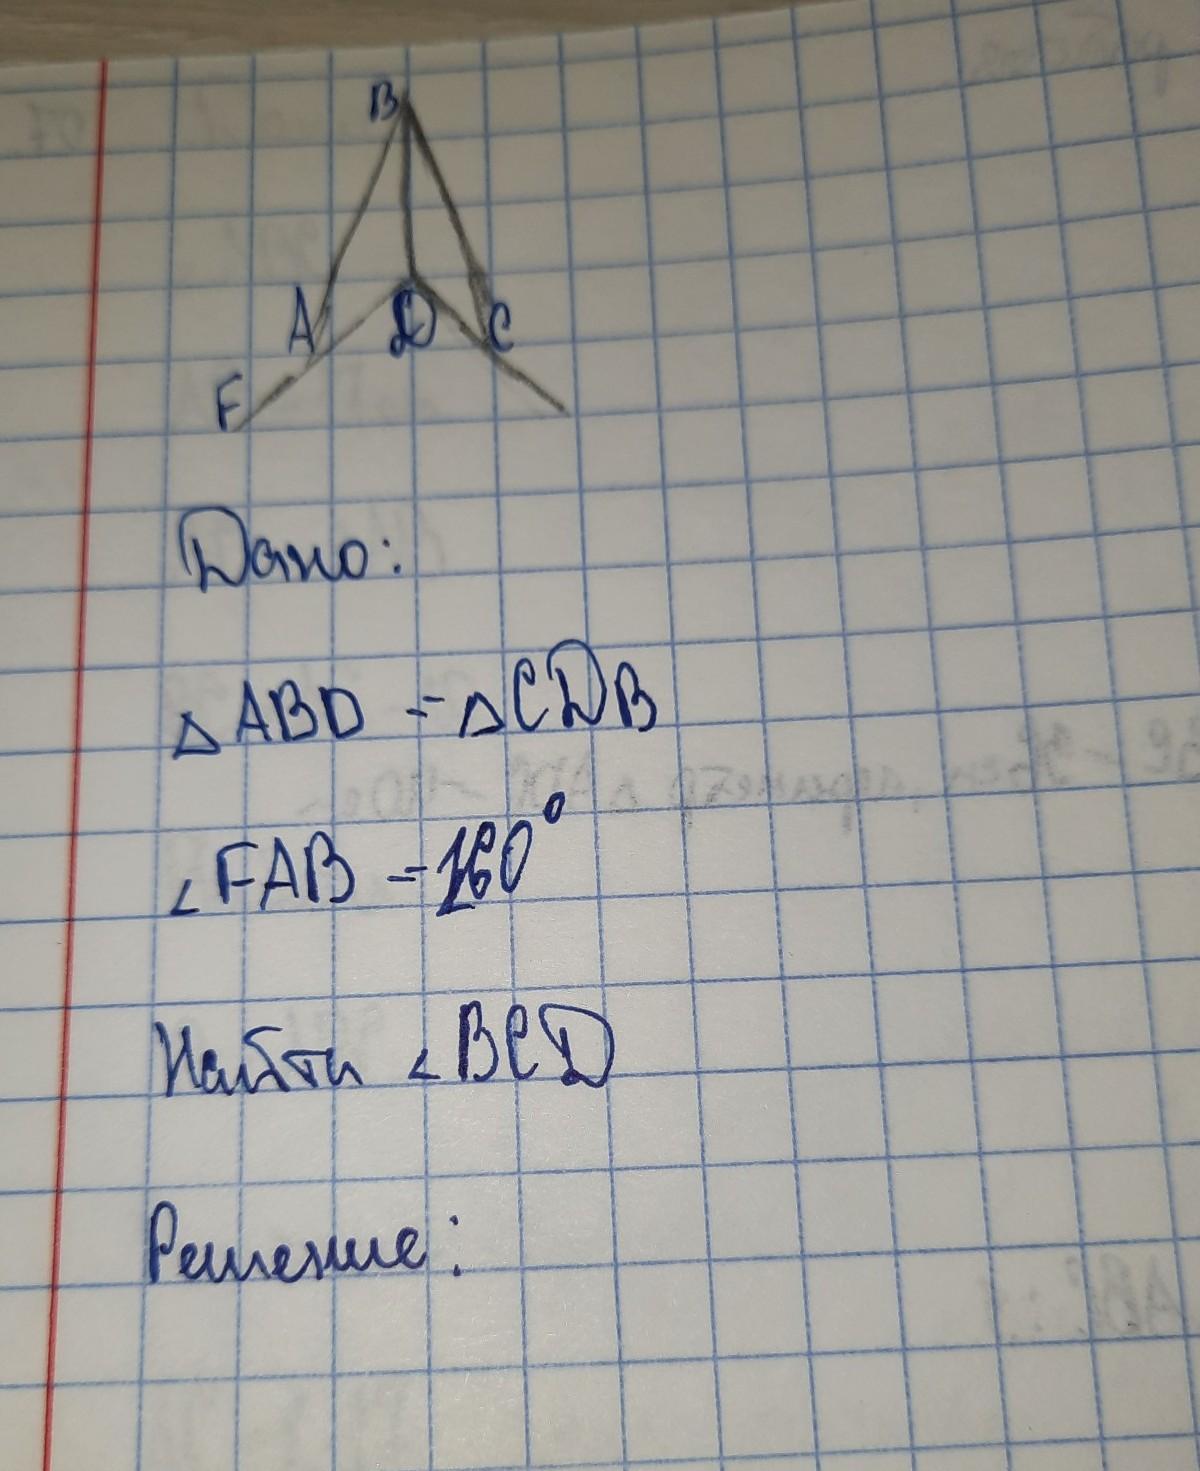 B
A D C
F
Дано:
△ABD = △CDB
∠FAB = 160°
Найти ∠BCD
Решение: